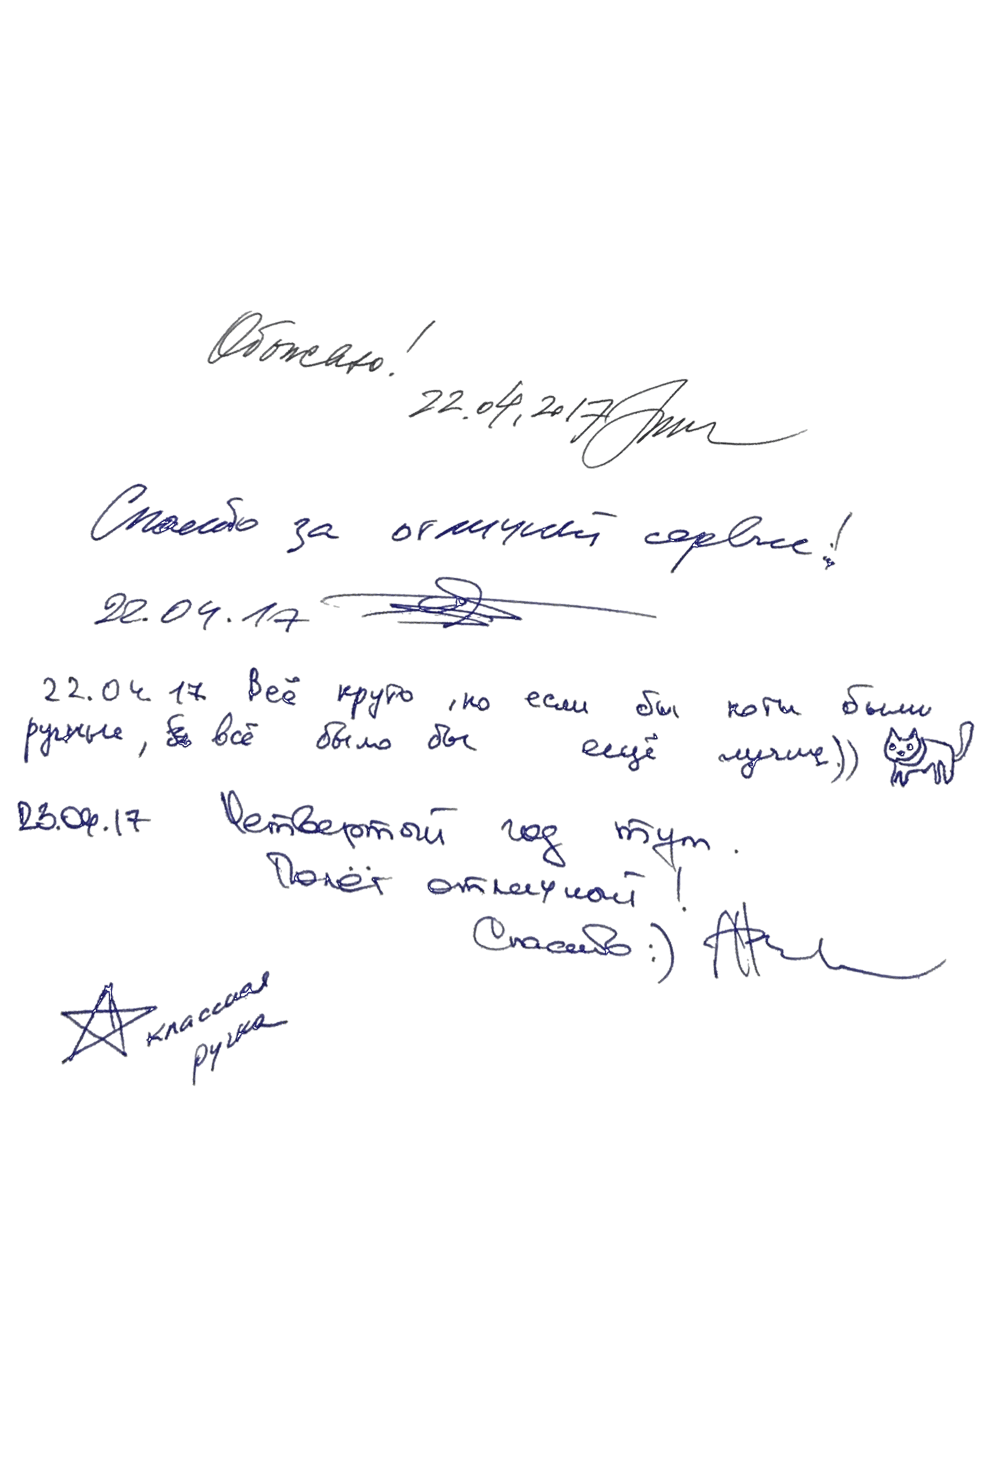 Обожаю!
22.04.2017
Спасибо за отличный сервис!
22.04.17
22.04.17 Всё круто, но если бы коты были
ручные, всё было бы ещё лучше))
23.04.17 Четвертый год тут.
Полёт отличный!
Спасибо :)
классная
ручка